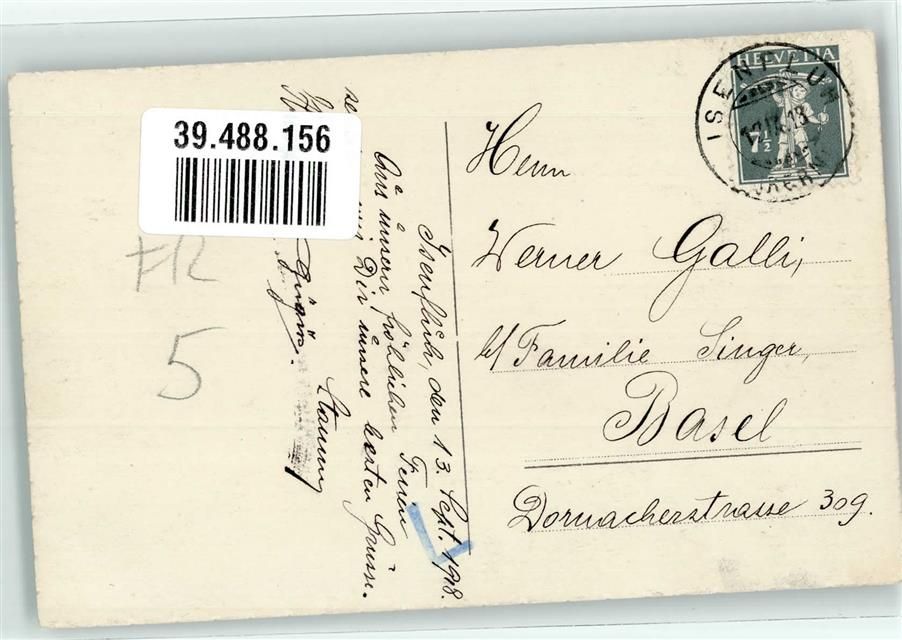 39.488.156
FR
5
Isenfluh, den 13. Sept. 1918.
Aus unsern fröhlichen Ferien
wir Dir unsere besten Grüsse.
HELVETIA
7½
ISENFLUH
Herrn
Werner Galli,
b/ Familie Singer,
Basel
Dornacherstrasse 309.